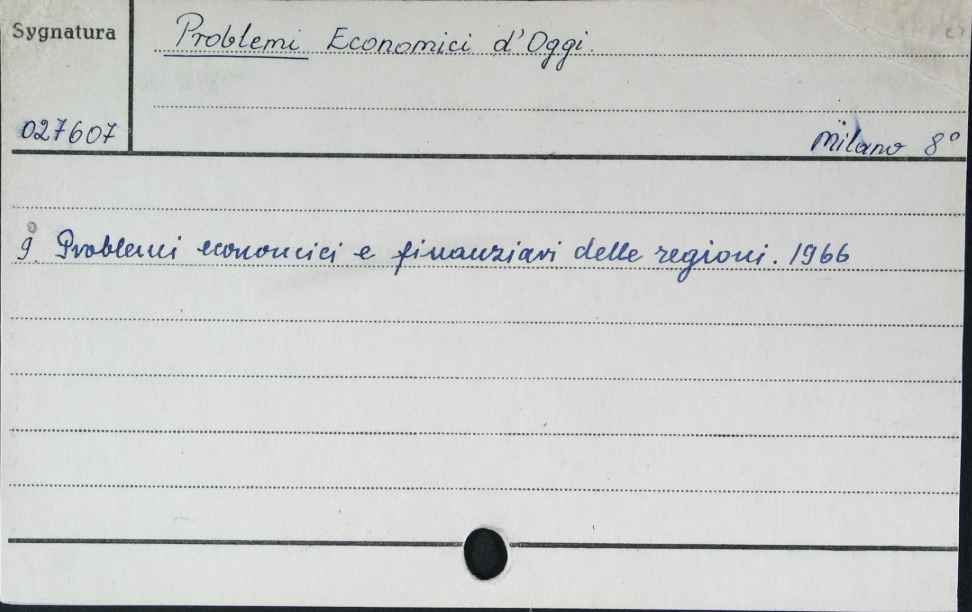 Sygnatura
Problemi Economici d'Oggi.
027607
Milano 8°
9. Problemi economici e finanziari delle regioni. 1966